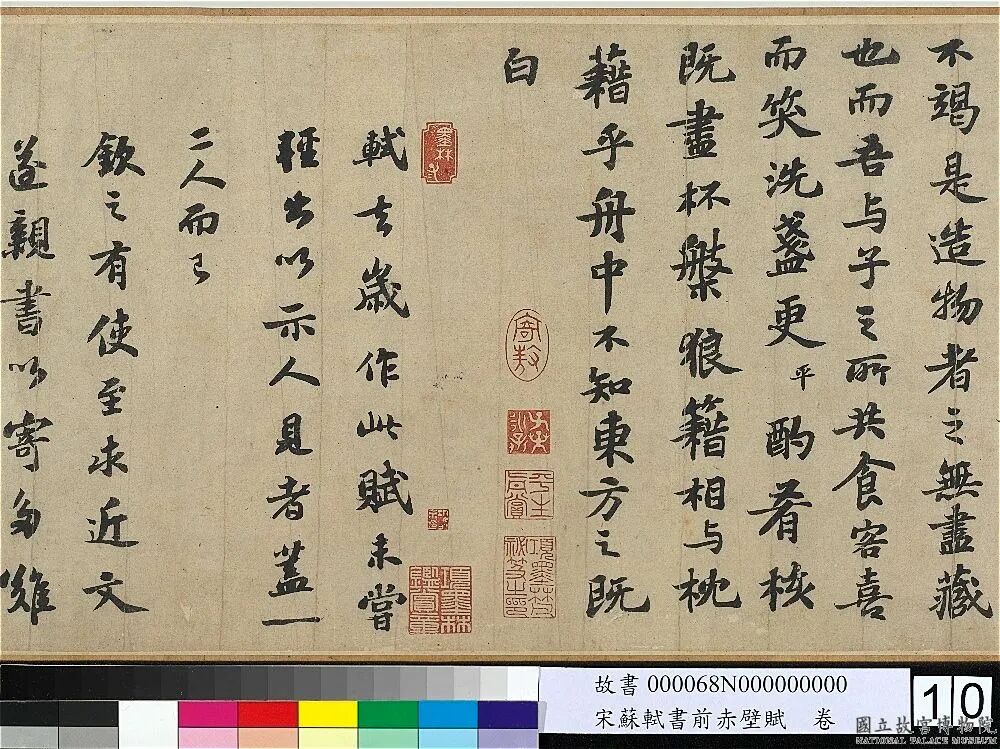 不竭是造物者之無盡藏
也而吾与子之所共食客喜
而笑洗盞更酌肴核
平
既盡杯槃狼籍相与枕
藉乎舟中不知東方之既
白
軾去歲作此賦未嘗
輕出以示人見者蓋一
二人而已
欽之有使至求近文
遂親書以寄多難
故書 000068N000000000
宋蘇軾書前赤壁賦 卷
10
國立故宮博物院
NATIONAL PALACE MUSEUM